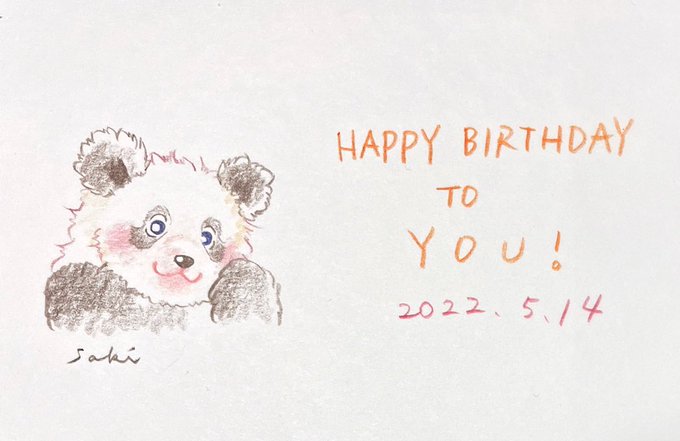 HAPPY BIRTHDAY
TO
YOU!
2022.5.14
Saki